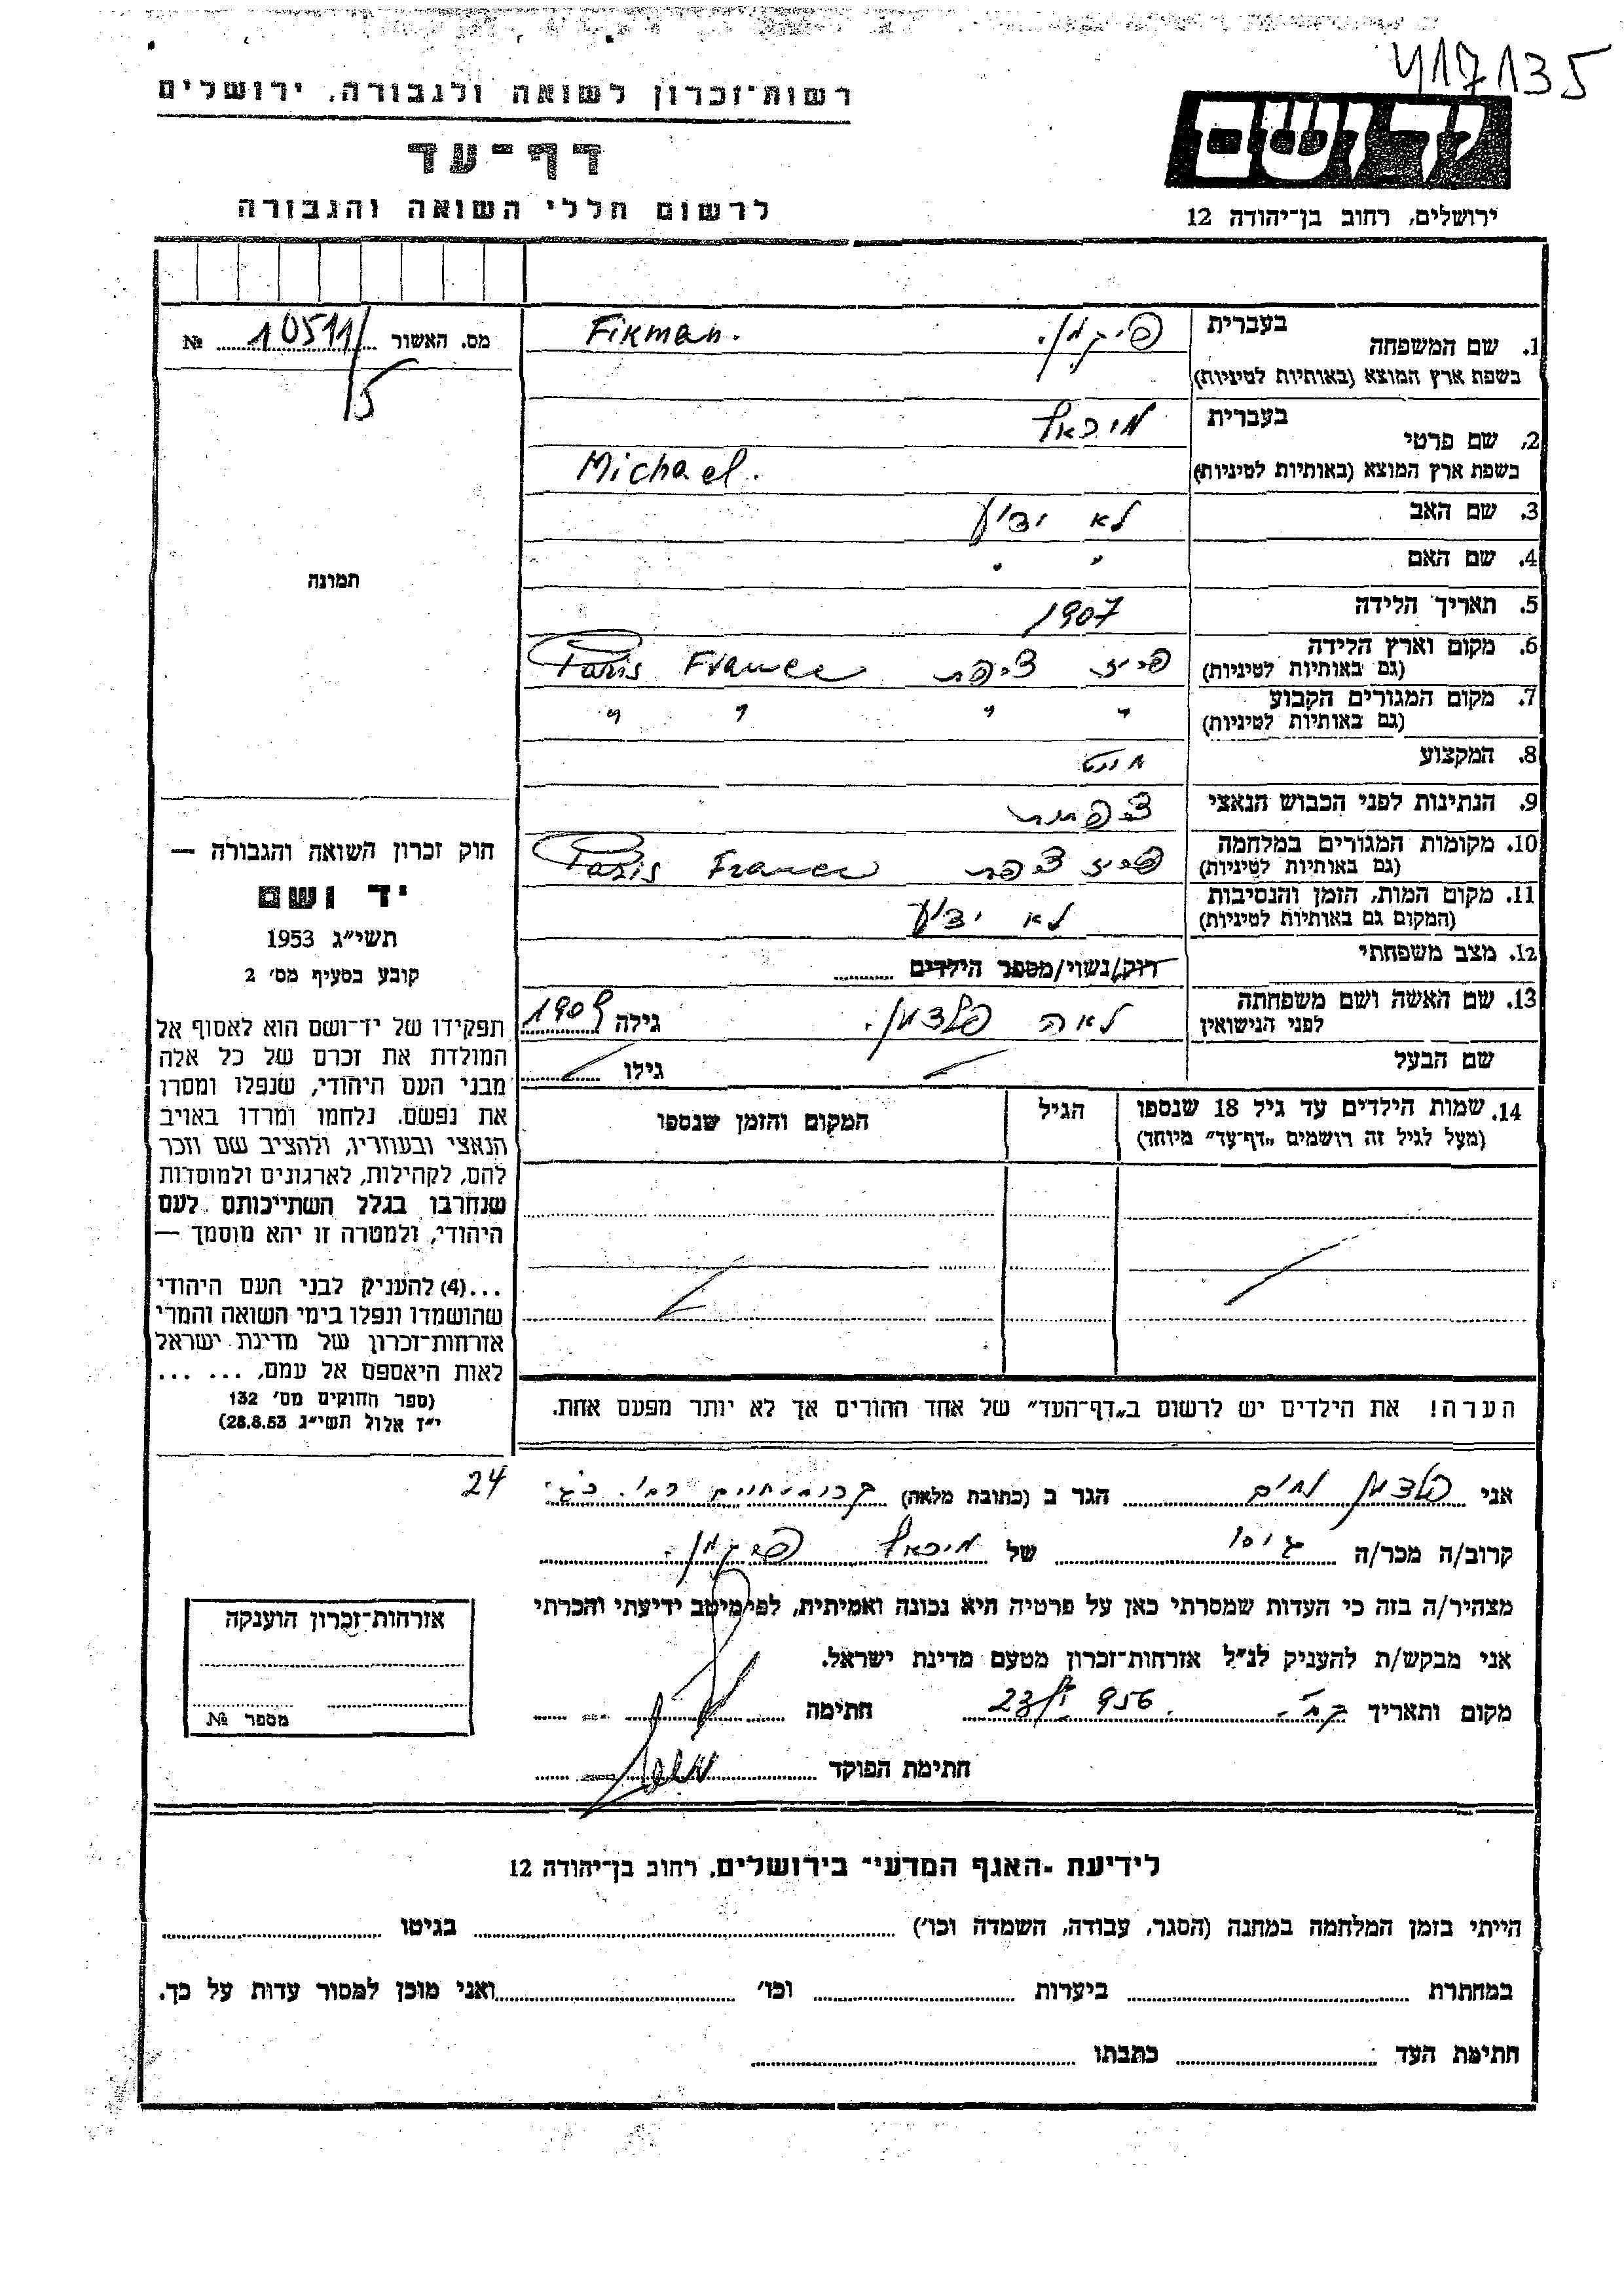 417135
רשות־זכרון לשואה ולגבורה, ירושלים
דף־עד
לרשום חללי השואה והגבורה
יד ושם
ירושלים, רחוב בן־יהודה 12
מס. האשור 10511/5 №
1. שם המשפחה בעברית פיקמן.
בשפת ארץ המוצא (באותיות לטיניות) Fikman.
2. שם פרטי בעברית מיכאל
בשפת ארץ המוצא (באותיות לטיניות) Michael.
3. שם האב לא ידוע
4. שם האם " "
5. תאריך הלידה 1907
6. מקום וארץ הלידה
(גם באותיות לטיניות) פריז צרפת Paris France
7. מקום המגורים הקבוע
(גם באותיות לטיניות) " " " "
8. המקצוע
9. הנתינות לפני הכבוש הנאצי צרפתית
10. מקומות המגורים במלחמה
(גם באותיות לטיניות) פריז צרפת Paris France
11. מקום המות, הזמן והנסיבות
(המקום גם באותיות לטיניות) לא ידוע
12. מצב משפחתי רווק/נשוי/מספר הילדים
13. שם האשה ושם משפחתה
לפני הנישואין לאה פלדמן. גילה 1909
שם הבעל גילו
14. שמות הילדים עד גיל 18 שנספו
(מעל לגיל זה רושמים „דף־עד״ מיוחד)
הגיל
המקום והזמן שנספו
הערה! את הילדים יש לרשום ב„דף־העד״ של אחד ההורים אך לא יותר מפעם אחת.
תמונה
חוק זכרון השואה והגבורה —
יד ושם
תשי״ג 1953
קובע בסעיף מס׳ 2
תפקידו של יד־ושם הוא לאסוף אל
המולדת את זכרם של כל אלה
מבני העם היהודי, שנפלו ומסרו
את נפשם, נלחמו ומרדו באויב
הנאצי ובעוזריו, ולהציב שם וזכר
להם, לקהילות, לארגונים ולמוסדות
שנחרבו בגלל השתייכותם לעם
היהודי, ולמטרה זו יהא מוסמך —
...(4) להעניק לבני העם היהודי
שהושמדו ונפלו בימי השואה והמרי
אזרחות־זכרון של מדינת ישראל
לאות היאספם אל עמם, ... ...
(ספר החוקים מס׳ 132
י״ז אלול תשי״ג 28.8.53)
אני פלדמן נחום הגר ב (כתובת מלאה) 24
קרוב/ה מכר/ה גיסו של מיכאל פיקמן.
מצהיר/ה בזה כי העדות שמסרתי כאן על פרטיה היא נכונה ואמיתית, לפי מיטב ידיעתי והכרתי
אני מבקש/ת להעניק לנ״ל אזרחות־זכרון מטעם מדינת ישראל.
מקום ותאריך חתימה
חתימת הפוקד
אזרחות־זכרון הוענקה
מספר №
לידיעת „האגף המדעי״ בירושלים, רחוב בן־יהודה 12
הייתי בזמן המלחמה במחנה (הסגר, עבודה, השמדה וכו׳) בגיטו
במחתרת ביערות וכו׳ ואני מוכן למסור עדות על כך.
חתימת העד כתבתו